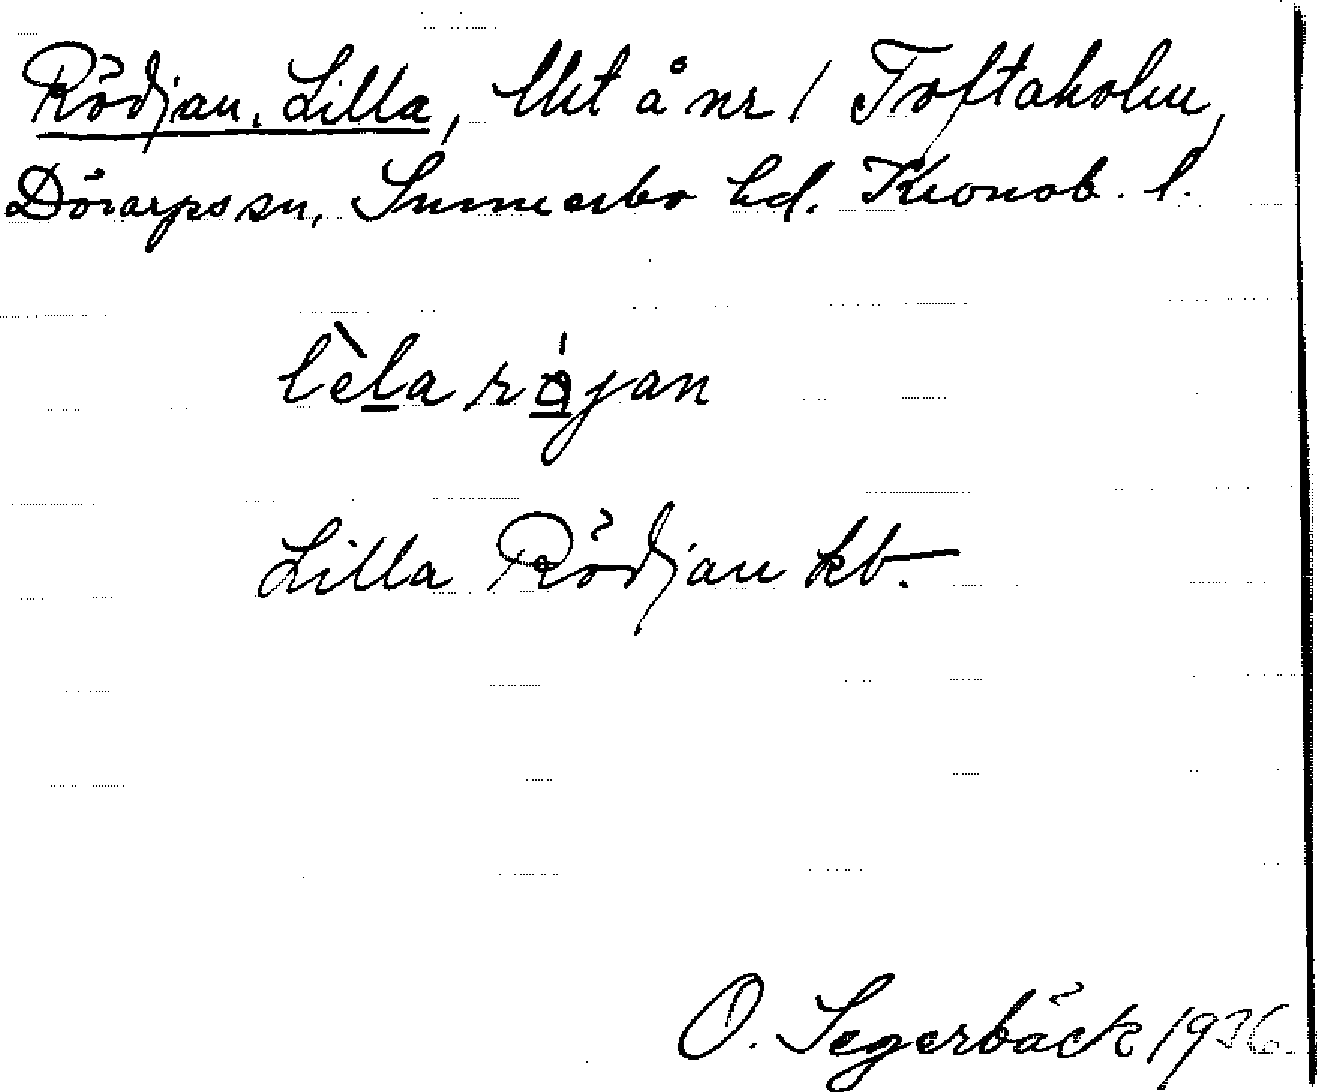 Rödjan, Lilla, lht å nr 1 Toftaholm,
Dörarps sn, Sunnerbo hd. Kronob. l.
lèla rájan
Lilla Rödjan kb.
O. Segerbäck 1936.